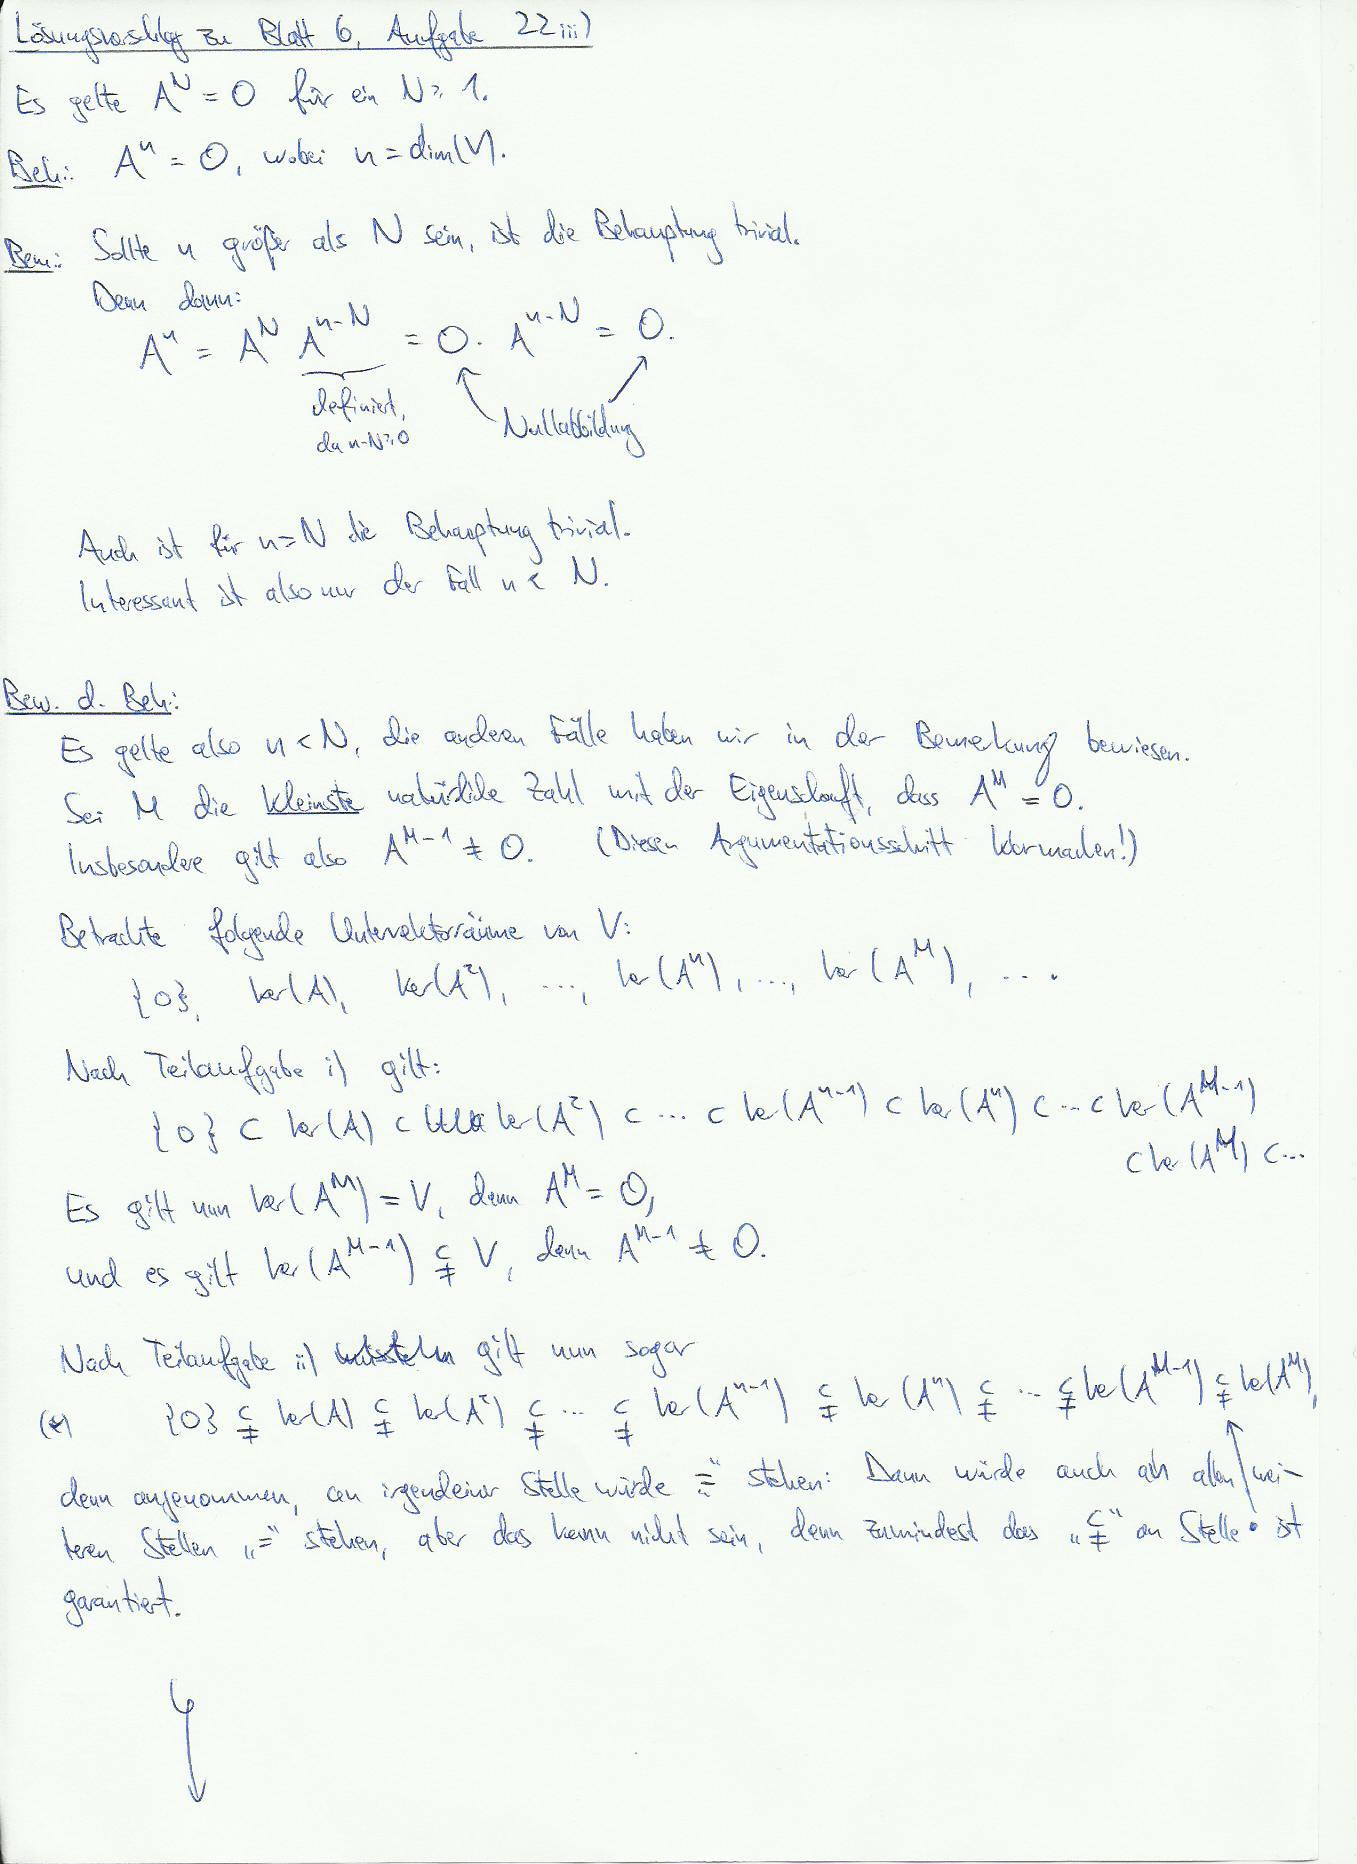 Lösungsvorschlag zu Blatt 6, Aufgabe 22iii)
Es gelte A^N = 0 für ein N ≥ 1.
Beh.: A^n = 0, wobei n = dim(V).
Bem.: Sollte n größer als N sein, ist die Behauptung trivial.
Denn dann:
A^n = A^N A^{n-N} = 0 · A^{n-N} = 0.
definiert,
da n-N ≥ 0
Nullabbildung
Auch ist für n=N die Behauptung trivial.
Interessant ist also nur der Fall n < N.
Bew. d. Beh.:
Es gelte also n < N, die anderen Fälle haben wir in der Bemerkung bewiesen.
Sei M die kleinste natürliche Zahl mit der Eigenschaft, dass A^M = 0.
Insbesondere gilt also A^{M-1} ≠ 0. (Diesen Argumentationsschritt klarmachen!)
Betrachte folgende Untervektorräume von V:
{0}, ker(A), ker(A²), ..., ker(A^n), ..., ker(A^M), ....
Nach Teilaufgabe i) gilt:
{0} ⊂ ker(A) ⊂ ker(A²) ⊂ ... ⊂ ker(A^{n-1}) ⊂ ker(A^n) ⊂ ... ⊂ ker(A^{M-1})
⊂ ker(A^M) ⊂ ...
Es gilt nun ker(A^M) = V, denn A^M = 0,
und es gilt ker(A^{M-1}) ⊊ V, denn A^{M-1} ≠ 0.
Nach Teilaufgabe ii) gilt nun sogar
(*) {0} ⊊ ker(A) ⊊ ker(A²) ⊊ ... ⊊ ker(A^{n-1}) ⊊ ker(A^n) ⊊ ... ⊊ ker(A^{M-1}) ⊊ ker(A^M),
denn angenommen, an irgendeiner Stelle würde „=“ stehen: Dann würde auch an allen wei-
teren Stellen „=“ stehen, aber das kann nicht sein, denn zumindest das „⊊“ an Stelle • ist
garantiert.